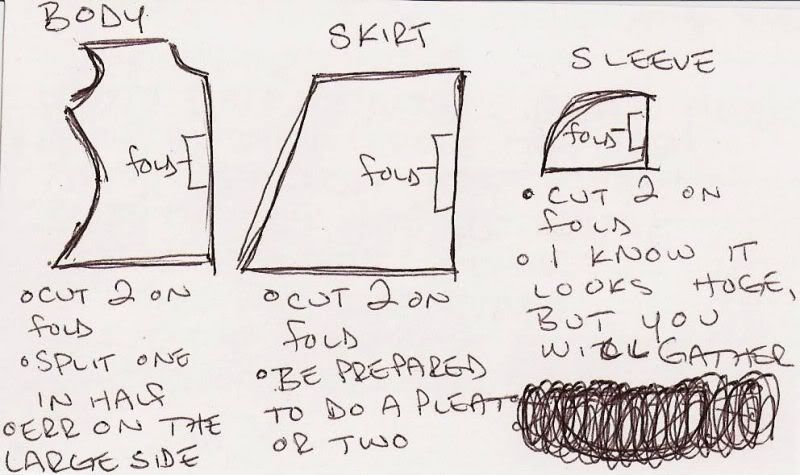 BODY
FOLD
• CUT 2 ON
FOLD
• SPLIT ONE
IN HALF
• ERR ON THE
LARGE SIDE
SKIRT
FOLD
• CUT 2 ON
FOLD
• BE PREPARED
TO DO A PLEAT
OR TWO
SLEEVE
FOLD
• CUT 2 ON
FOLD
• I KNOW IT
LOOKS HUGE,
BUT YOU
WILL GATHER